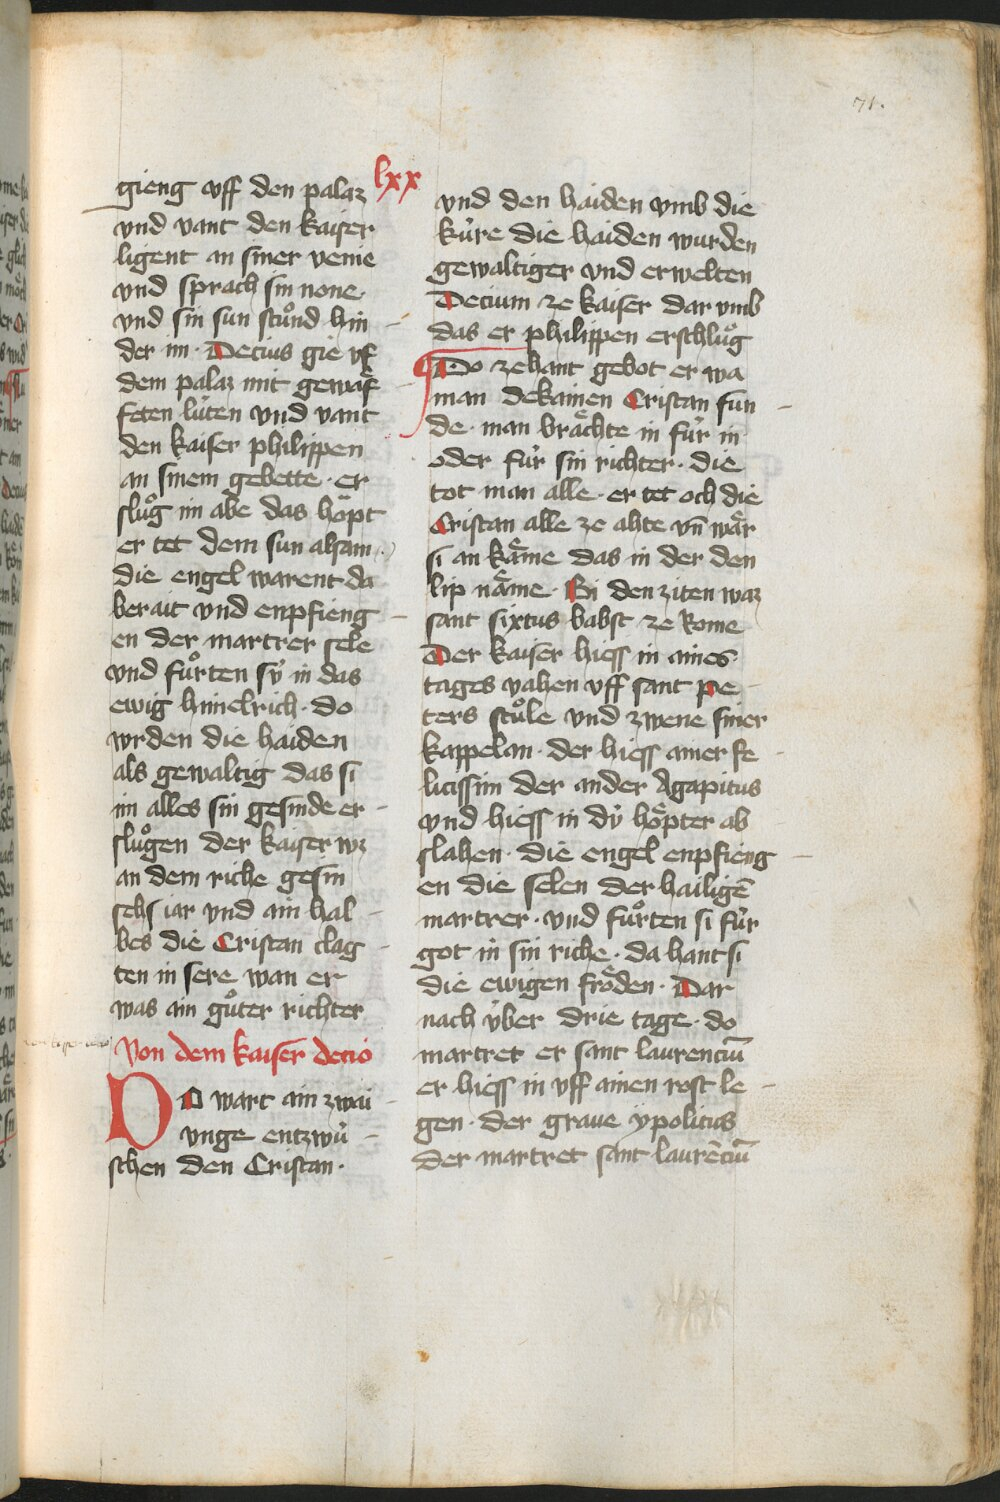 71.
lxx
gieng vff den palaz
vnd vant den kaiser
ligent an siner venie
vnd sprach sin none
vnd sin sun stuͦnd hin
der im · Decius gie vf
dem palaz mit gewaͤf
feten luͤten vnd vant
den kaiser philippen
an sinem gebette · er
sluͦg im abe das hoͤpt
er tet dem sun alsam
die engel warent da
berait vnd enpfieng
en der martrer sele
vnd fuͦrten sy̍ in das
ewig himelrich · do
wrden die haiden
als gewaltig das si
im alles sin gesinde er
sluͦgen der kaiser wz
an dem riche gesin
sehs iar vnd ain hal
bes die Cristan clag
ten in sere wan er
was ain guͦter richter
Von dem kaiser decio
DO wart ain zwai
vnge entzwuͤ
schen den Cristan ·
vnd den haiden vmb die
kuͤre die haiden wurden
gewaltiger vnd erwelten
Decium ze kaiser dar vmb
das er philippen erschluͦg
Do zehant gebot er wa
man dekainen Cristan fun
de · man braͤchte in fuͤr in
oder fuͤr sin richter · die
tot man alle · er tet och die
Cristan alle ze ahte vn̄ waͤr
si an kaͤme das in der den
lip naͤme · Bi den ziten waz
sant sixtus babst ze Rome
Der kaiser hiess in aines
tages vahen vff sant pe
ters stuͦle vnd zwene siner
kappelan · der hiess ainer fe
licissim der ander Agapitus
vnd hiess in dy̍ hoͤpter ab
slahen · die engel enpfieng
en die selen der hailigē
martrer · vnd fuͦrten si fuͤr
got in sin riche · da hant si
die ewigen froͤden · Dar
nach vͤber drie tage · do
martret er sant laurenciū
er hiess in vff ainen rost le
gen · der graue ypolitus
der martret sant laurēciū